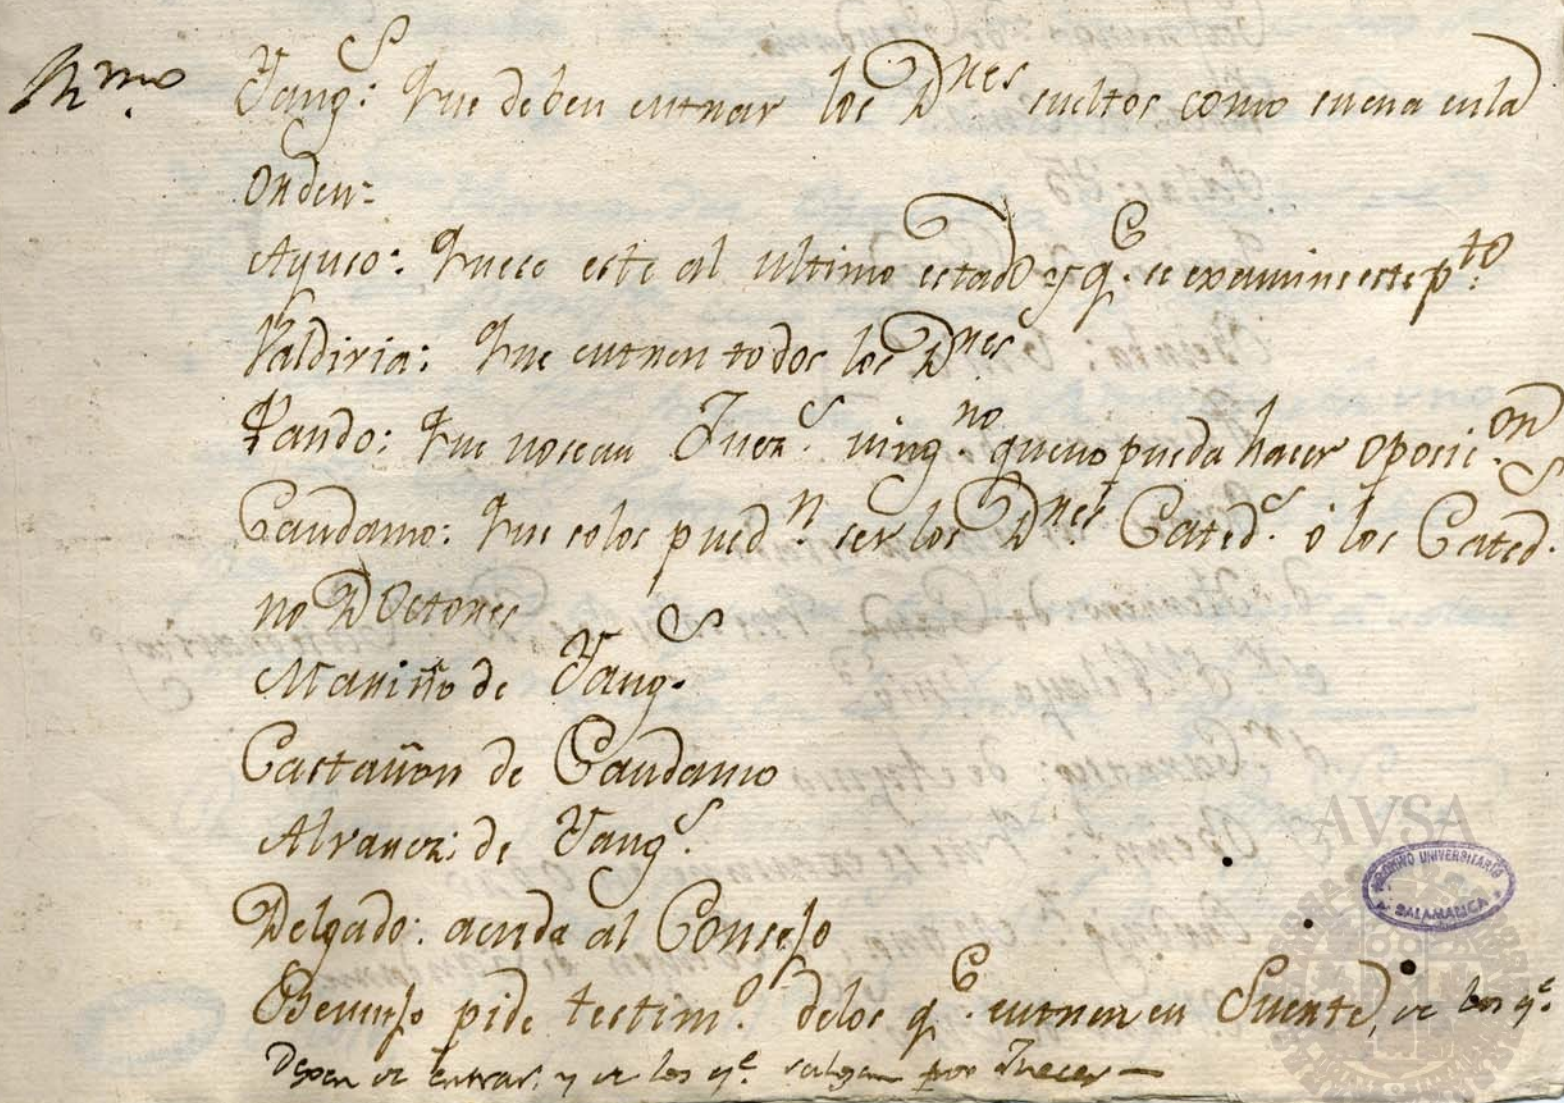 Rmo Yang.s: Que deben entrar los Dnes sueltos como suena en la
Orden=
Ayuso: Que se este al ultimo estado y q.e se examine este pto:
Valdivia: Que entren todos los Dnes
Pando: Que no sean Juez.s ning.no que no pueda hacer oposic.on
Candamo: Que solos pued.n ser los D.nes Cated.s ó los Cated.s
no Doctores
Mariño de Yang.s
Castañon de Candamo
Alvarez: de Yang.s
Delgado: acuda al Consejo
Bermejo pide testim.o de los q.e entren en Suerte, de los q.e
Dexen de entrar, y de los q.e salgan por Jueces —
AVSA
ARCHIVO UNIVERSITARIO
SALAMANCA